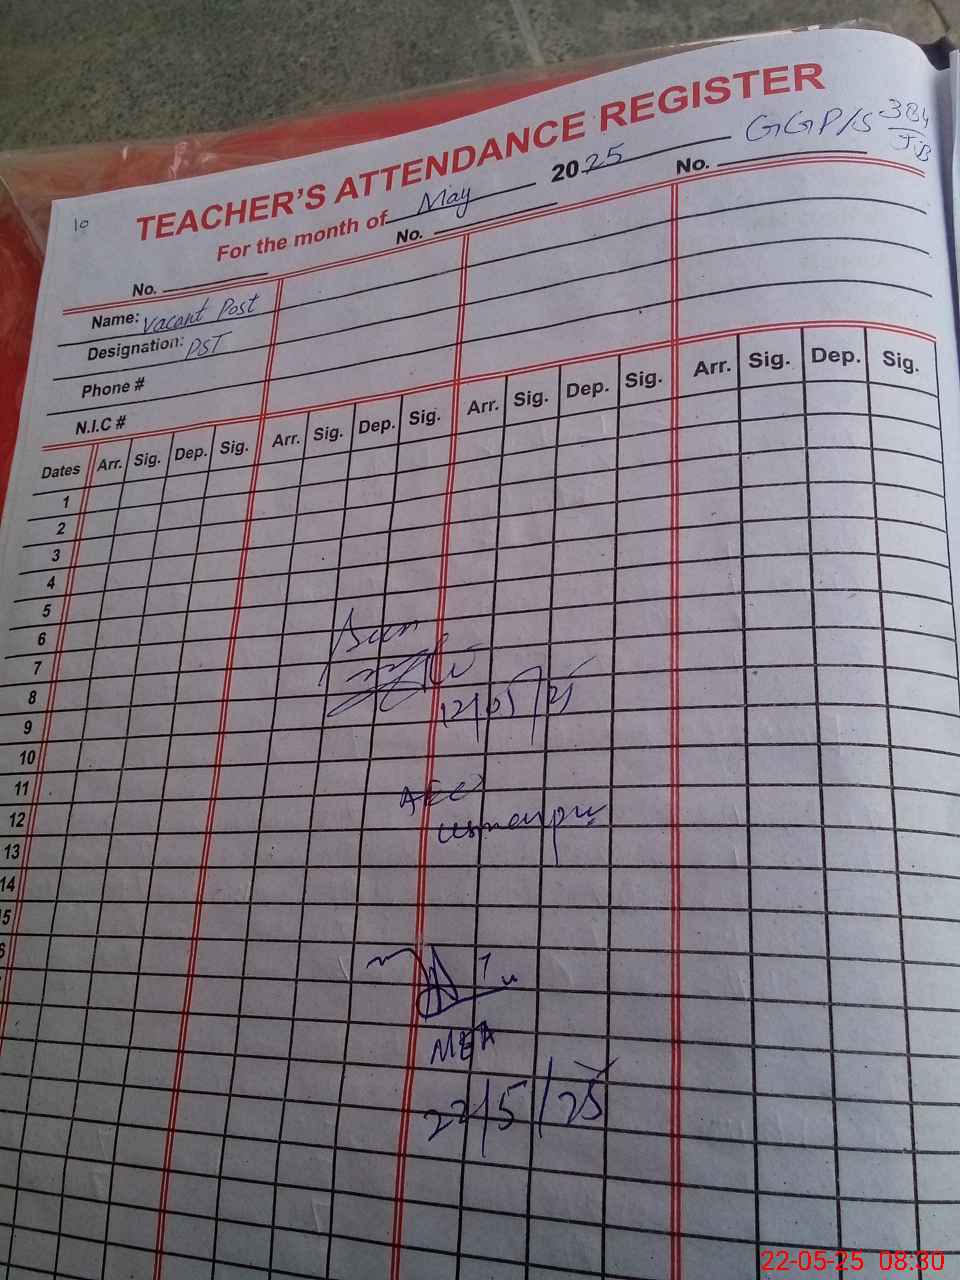 10
TEACHER'S ATTENDANCE REGISTER
GGP/S 384
JB
For the month of May 2025
No. No. No.
Name: Vacant Post
Designation: PST
Phone #
N.I.C #
Dates Arr. Sig. Dep. Sig. Arr. Sig. Dep. Sig. Arr. Sig. Dep. Sig. Arr. Sig. Dep. Sig.
1
2
3
4
5
6
Seen
7
8
12/05/25
9
10
11
AEO
12
13
14
15
6
MEA
22/5/25
22-05-25 08:30